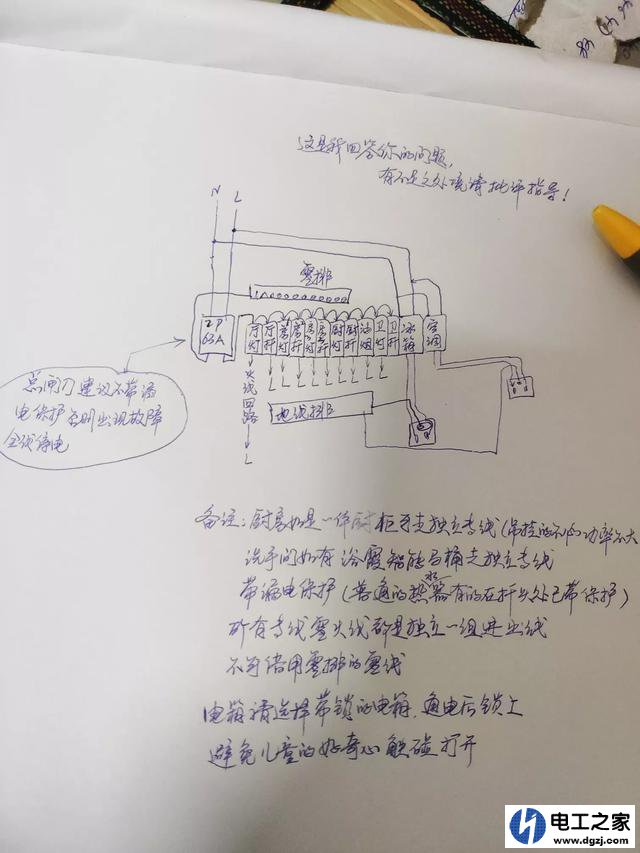 这是我回答你的问题,
有不足之处境请批评指导!
N L
零排
2P
63A
厅灯 厅杆 房灯 房杆 房灯 房杆 厨灯 厨杆 油烟 卫灯 卫杆 冰箱 空调
火线回路
L L L L L L L
地线排
L
总闸刀建议不带漏
电保护否则出现故障
全线停电
备注:厨房如是一体厨柜可走独立专线(吊挂的不必功率不大
洗手间如有浴霸智能马桶走独立专线
带漏电保护(普通的热水器有的在插头处已带保护)
所有专线零火线都是独立一组进出线
不可借用零排的零线
电箱请选择带锁的电箱,通电后锁上
避免儿童的好奇心触碰打开
电工之家
www.dgzj.com